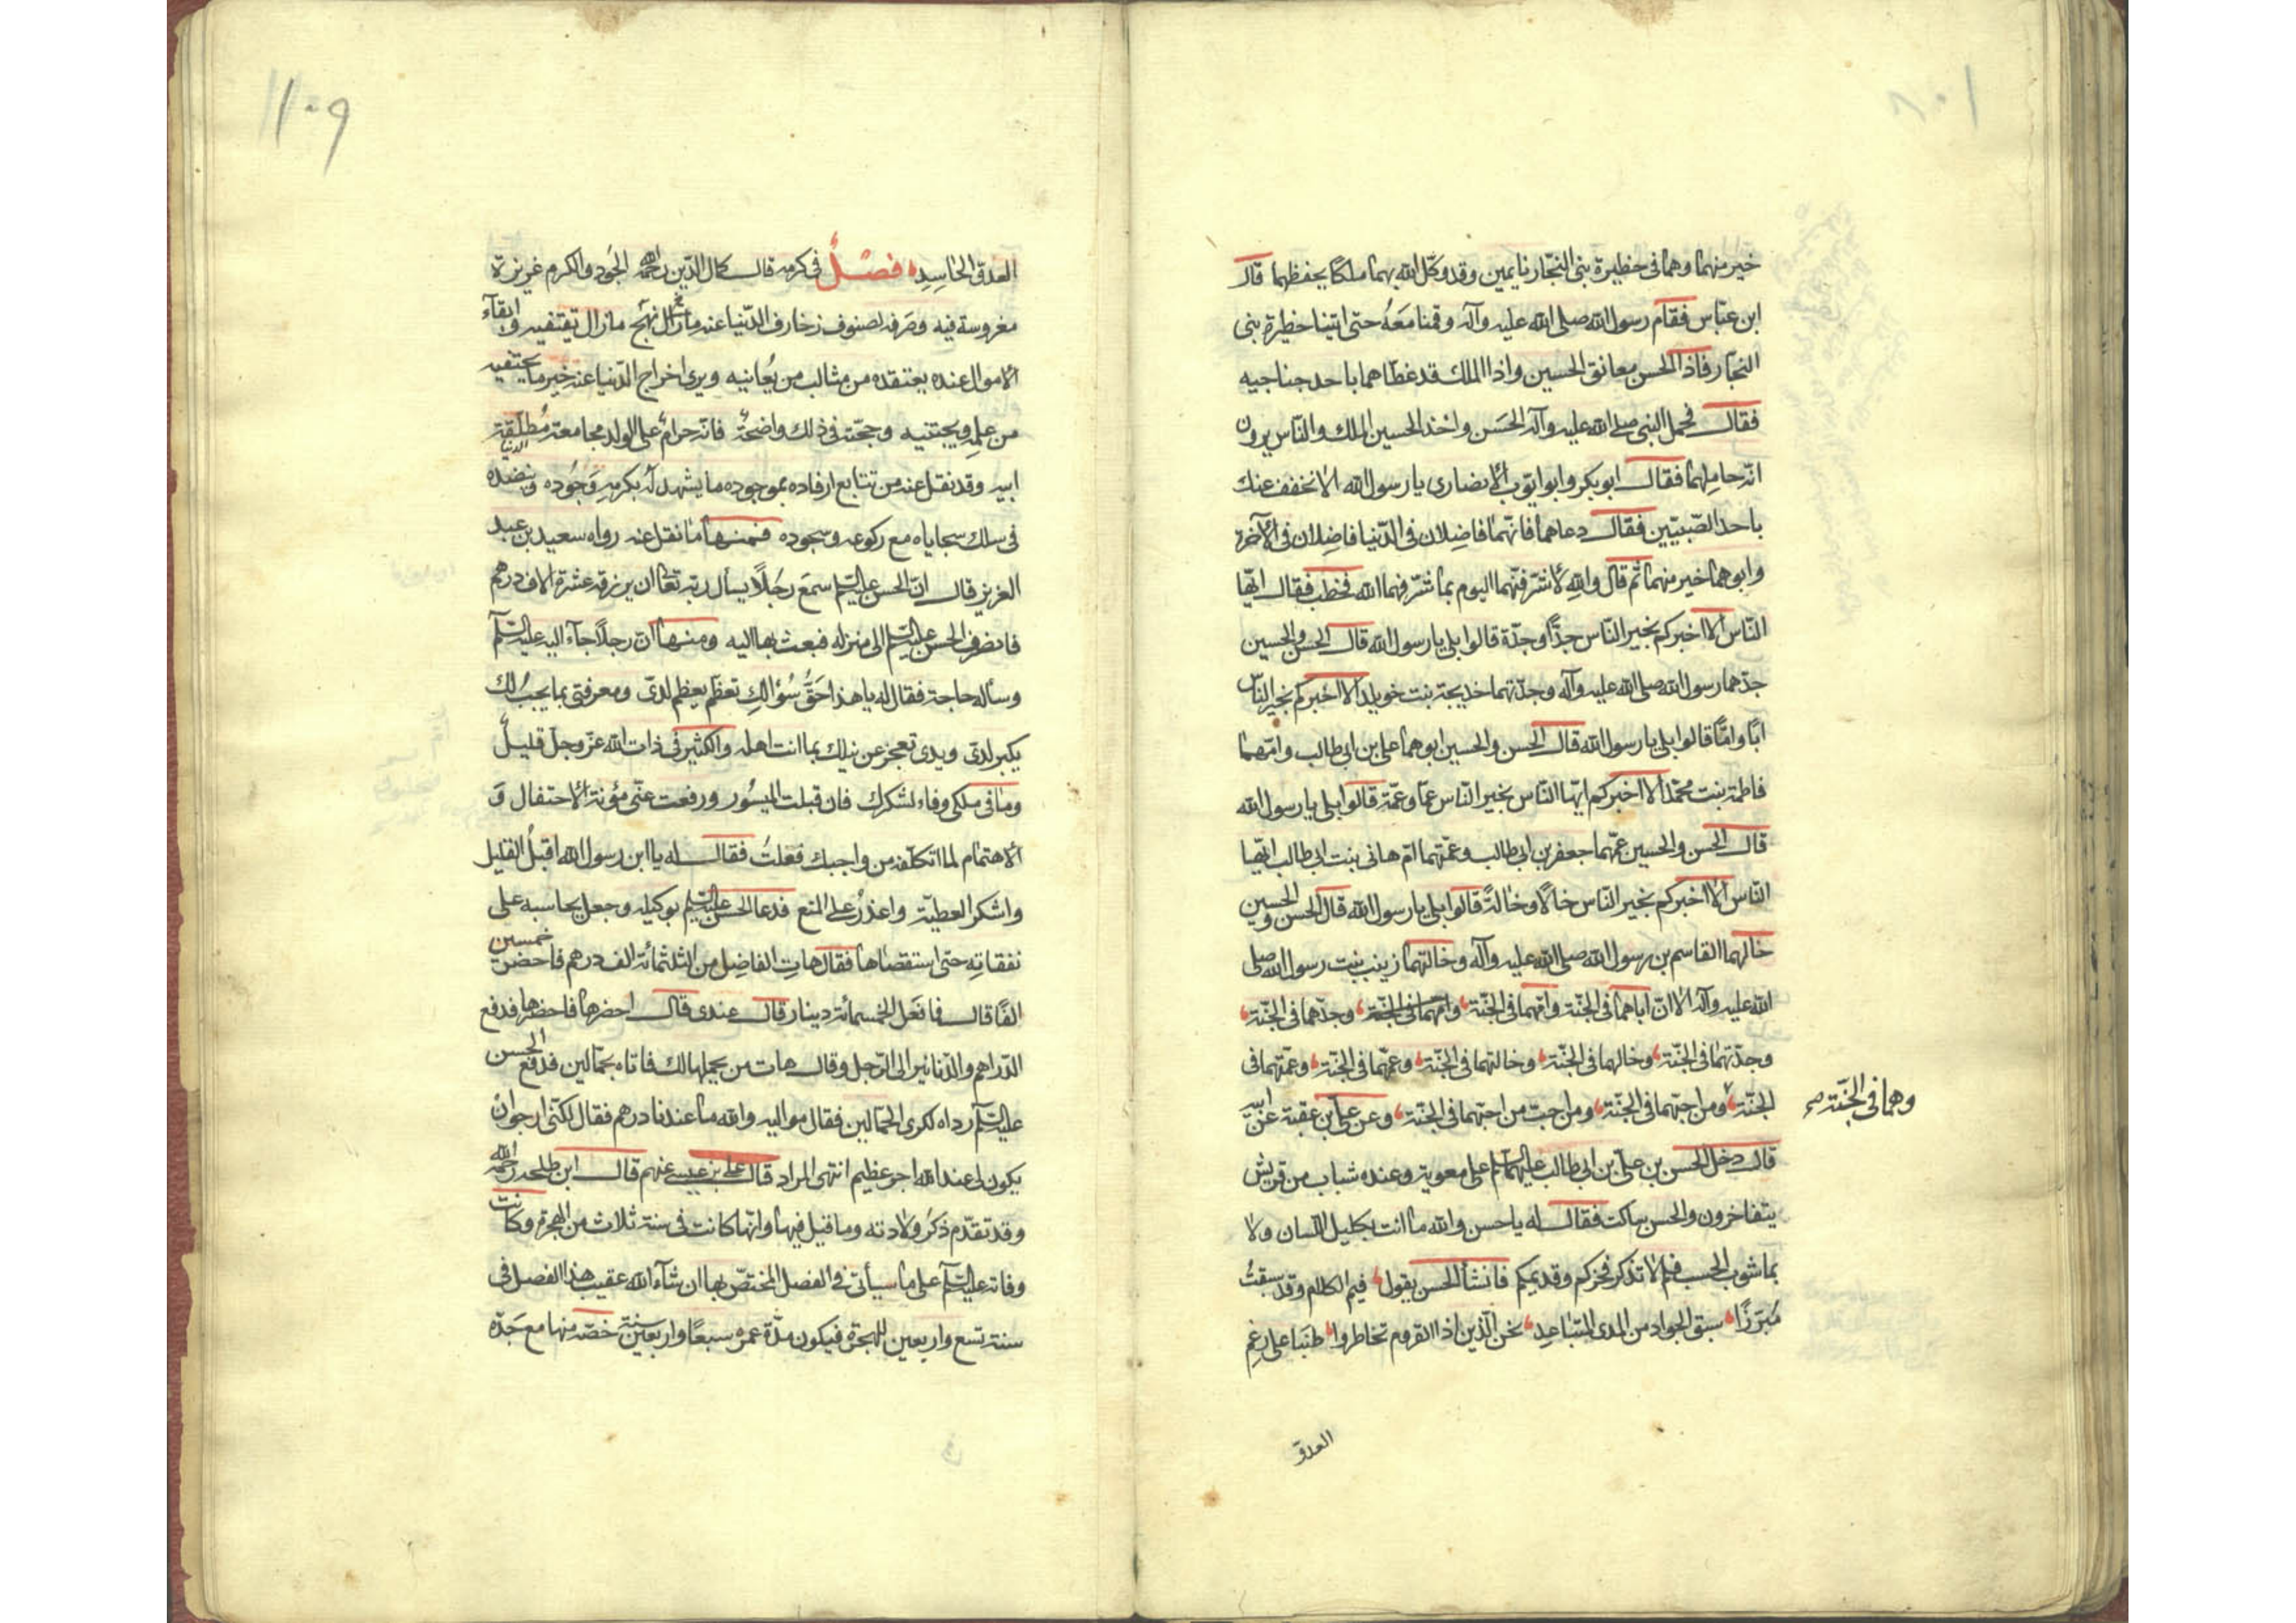 خير منهما وهما فى حظيرة بنى النجّار نايمين وقد وكّل الله بهما ملكًا يحفظهما قال
ابن عبّاس فقام رسول الله صلى الله عليه وآله وقمنا مَعَهُ حتى اتينا حظيرة بنى
النجّار فاذا الحسن معانق الحسين واذا الملك قد غطّاهما باحد جناحيه
فقال فحمل النبى صلى الله عليه وآله الحَسَن واخذ الحسين الملك والنّاس يرون
انّه حاملهما فقال ابو بكر وابو ايّوب الأنصارى يا رسول الله الا نخفف عنك
باحد الصّبيّين فقال دعاهما فانّهما فاضِلان فى الدّنيا فاضِلان فى الآخرة
وابوهما خير منهما ثم قال واللهِ لأشرّفنّهما اليوم بما شرّفهما الله فخطب فقال ايّها
النّاس الا اخبركم بخير النّاس جدًّا وجدّة قالوا بلى يا رسول الله قال الحسن والحسين
جدّهما رسول الله صلى الله عليه وآله وجدّتهما خديجة بنت خويلد الا اخبركم بخير الناس
ابًا وامًّا قالوا بلى يا رسول الله قال الحسن والحسين ابوهما على بن ابى طالب وامّهما
فاطمة بنت محمّد الا اخبركم ايّها النّاس بخير النّاس عمّا وعمّة قالوا بلى يا رسول الله
قال الحسن والحسين عمّهما جعفر بن ابى طالب وعمّتهما امّ هانى بنت ابى طالب ايّها
النّاس الا اخبركم بخير النّاس خالًا وخالةً قالوا بلى يا رسول الله قال الحسن والحسين
خالهما القاسم بن رسول الله صلى الله عليه وآله وخالتهما زينب بنت رسول الله صلى
الله عليه وآله الا انّ اباهما فى الجنّة وامّهما فى الجنّة وامّهما فى الجنّة وجدّهما فى الجنّة
وجدّتهما فى الجنّة وخالهما فى الجنّة وخالتهما فى الجنّة وعمّهما فى الجنّة وعمّتهما فى
الجنّة ومن احبّهما فى الجنّة ومن احبّ من احبّهما فى الجنّة وعن على بن عقبة عن ابيه
وهما فى الجنّة صح
قال دخل الحسن بن على بن ابى طالب عليهما السّلم على معوية وعنده شباب من قريش
يتفاخرون والحسن ساكت فقال له يا حسن والله ما انت بكليل اللّسان ولا
بماشوب الحسب فلم لا تذكر فخركم وقديمكم فانشأ الحسن يقول فيم الكلام وقد سبقتُ
مُبَرّزًا سبق الجواد من المدى المتباعِد نحن الّذين اذا القروم تخاطروا طبنا على رغم
العدوّ
١٠٩
العدوّ الحاسِدِ فصْلٌ فى كرمه قال كمال الدّين رحمه الله الجُود والكرم غريزة
مغروسة فيه وصَرفه لصنوف زخارف الدّنيا عنه ما زال نهج ما زال يقتفيه وابقآء
الاموال عنده يعتقده من مثالب من يُعانيه ويرى اخراج الدّنيا عنه خير ما يحتقبه
من علمه ويجتنيه وحجّته فى ذلك واضحة فانّه حرام على الولد مجامعة مُطلّقة
ابيه وقد نقل عنه من تتابع ارفاده بموجوده ما يشهد له بكرمِهِ وَجُوده وينضده
فى سلك سجاياه مع ركوعه وسجوده فمنها ما نقل عنه رواه سعيد بن عبد
العزيز قال انّ الحسن عليه السّلم سمعَ رجَلًا يسأل ربّه تعَالى ان يرزقه عشرة الاف درهم
فانصرف الحسن عليه السّلم الى منزله فبعث بها اليه ومنها انّ رجلًا جآء اليه عليه السّلم
وسأله حاجة فقال له يا هذا حَقّ سُؤالك تعظم يعظم لدىّ ومعرفتى بما يجبُ لك
يكبر لدىّ ويدى تعجز عن نيلك بما انت اهله والكثير فى ذات الله عزّ وجلّ قليلٌ
وما فى ملكى وفاء لشكرك فان قبلت الميسُور ورفعت عنّى مؤنة الاحتفال وَ
الاهتمام لما اتكلّفه من واجبك فعَلتُ فقال له يا ابن رسول الله اقبلُ القليل
واشكر العطيّة واعذرُ على المنع فدعا الحسن عليه السّلم بوكيله وجعل يحاسبه على
نفقاته حتى استقصاها فقال هاتِ الفاضِل من الثلثمائة الف درهم فاحضر خمسين
الفًا قال فما فَعَل الخمسمائة دينار قال عندى قال احضرها فاحضرها فدفع
الدّراهم والدّنانير الى الرّجل وقال هات من يحملها لك فاتاه بحمّالين فدفع الحسن
عليه السّلم رداه لكرى الحمّالين فقال مواليه والله ما عندنا درهم فقال لكنّى ارجو ان
يكون لى عند الله اجر عظيم انتهى المراد قال على بن عيسى عنهم قال ابن طلحة رحمه الله
وقد تقدّم ذكرُ ولادته وما قيل فيها وانّها كانت فى سنة ثلاث من الهجرة وكانت
وفاته عليه السّلم على ما سيأتى فى الفصل المختصّ بها ان شآء الله عقيب هذا الفصل فى
سنة تسع واربعين للهجرة فيكون مدّة عمره سبعًا واربعين سنة خصّه منها مع جَدّه